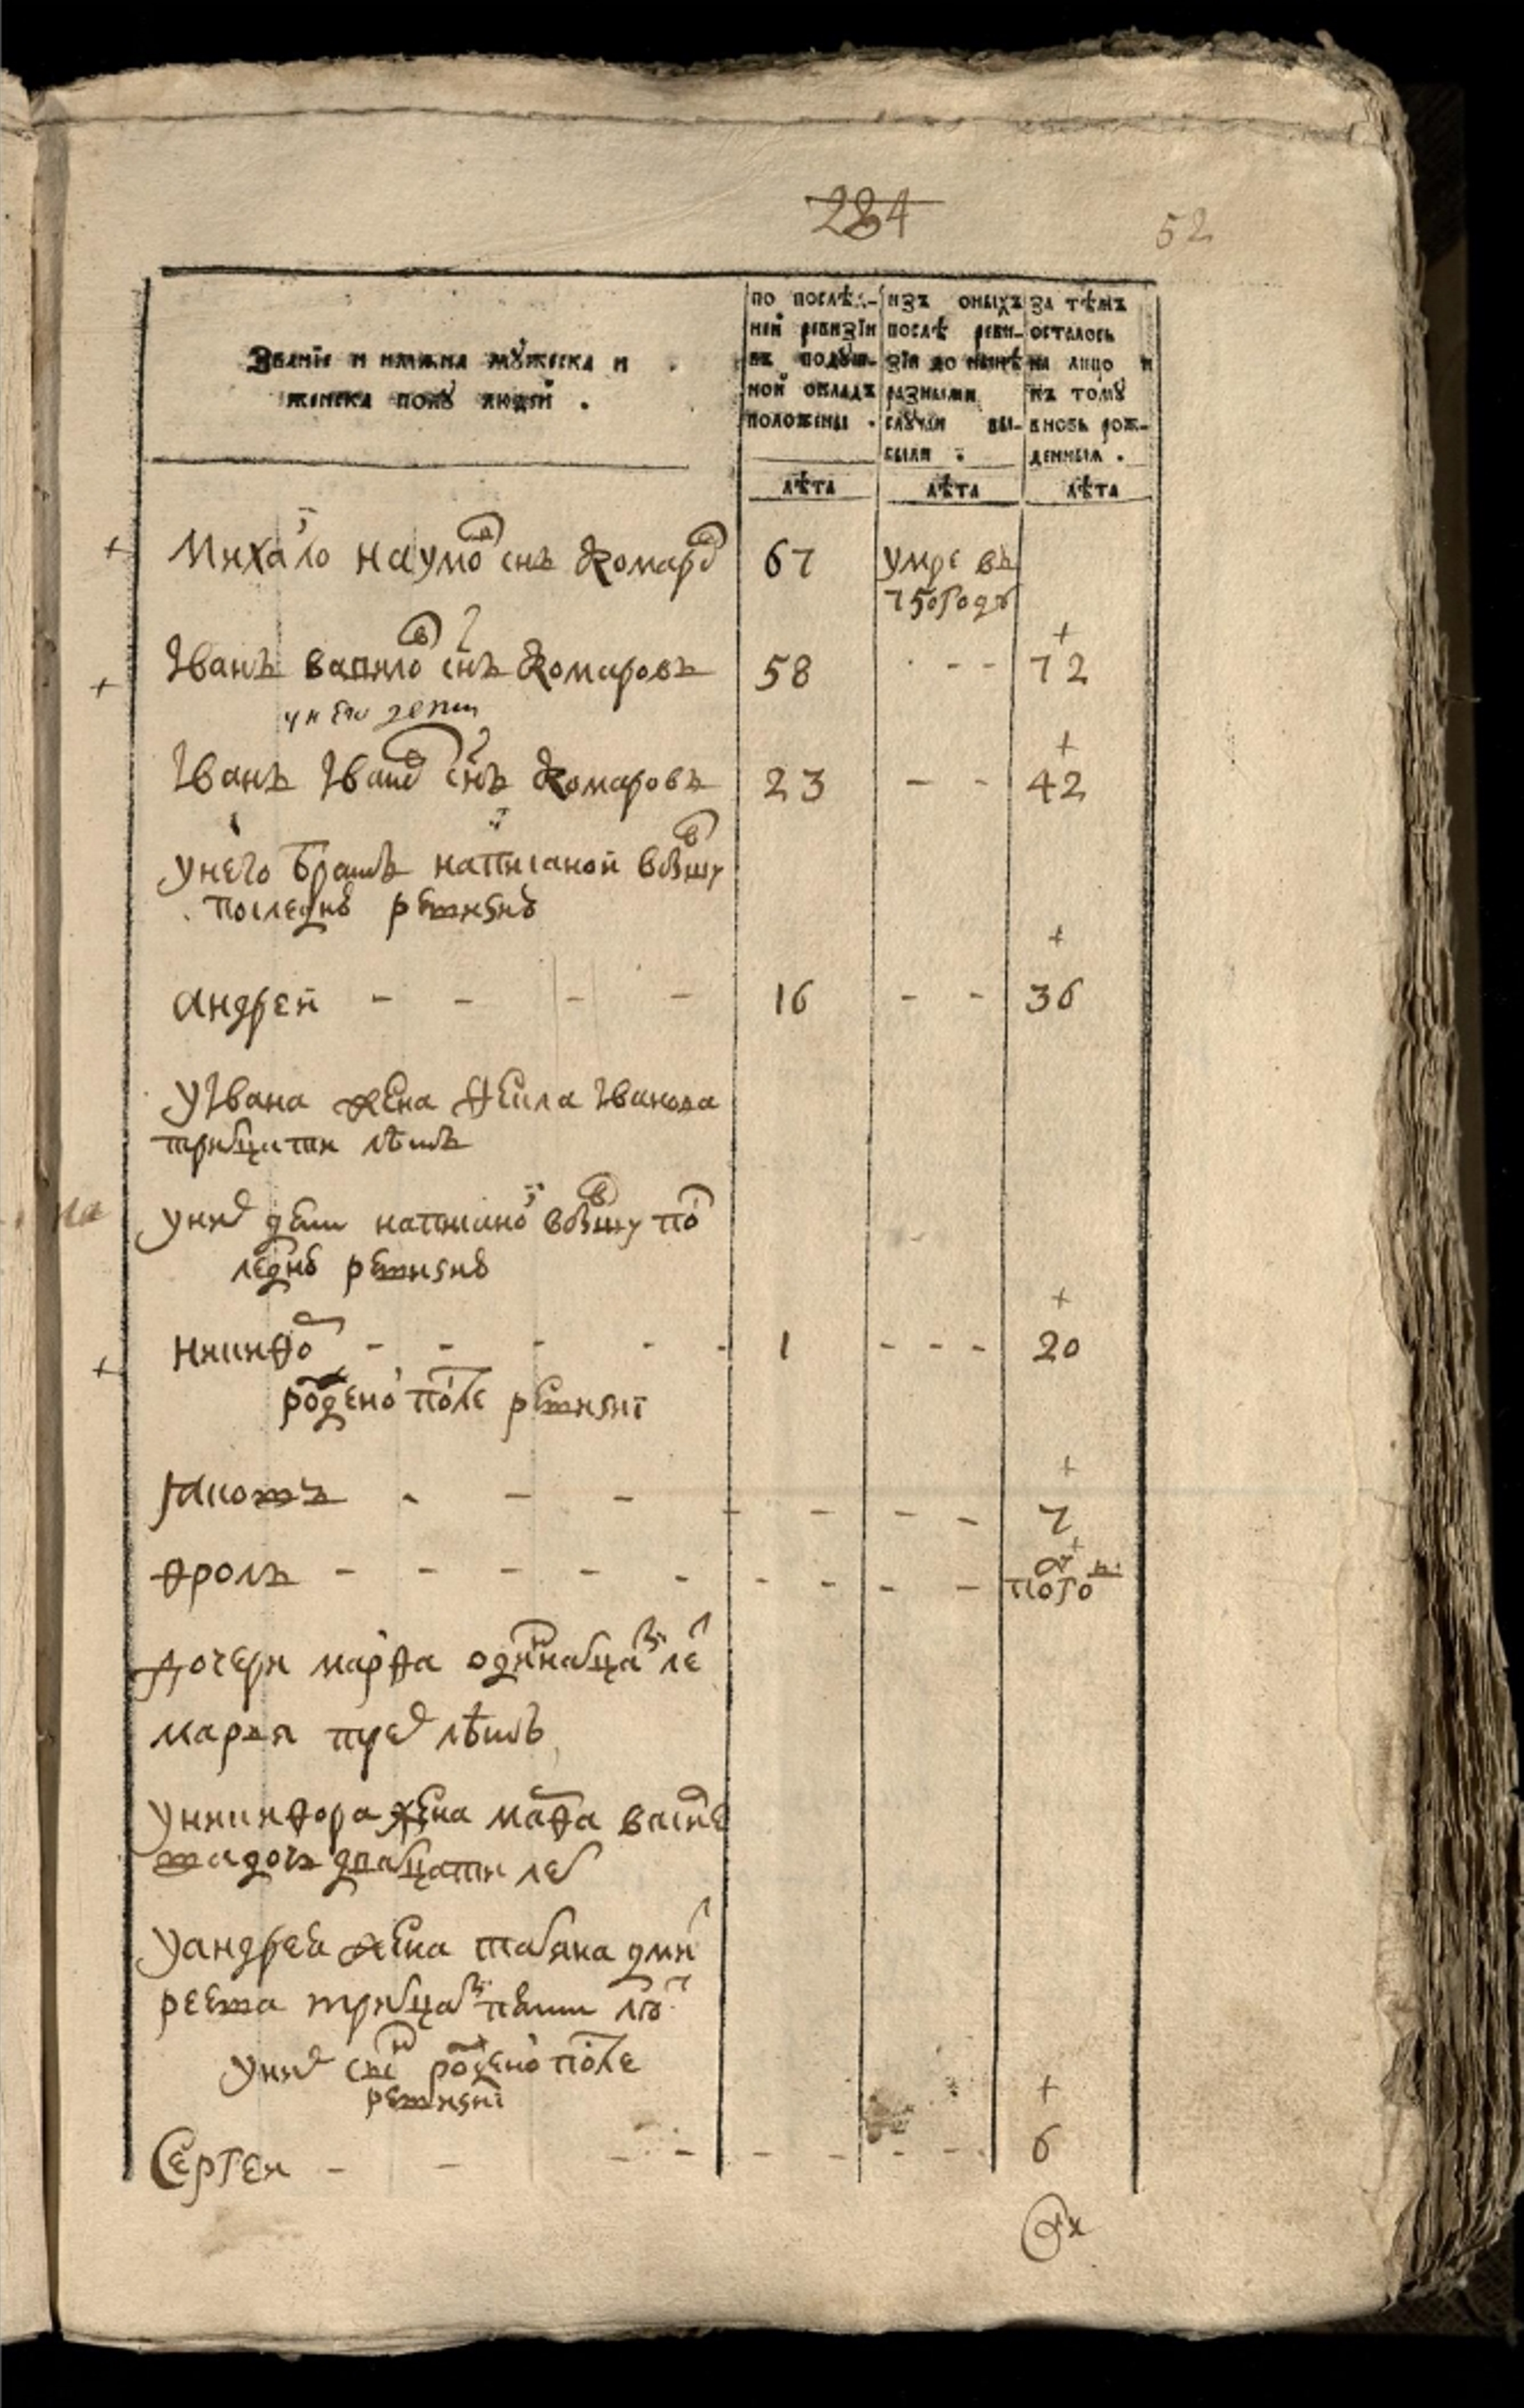 284
52
Званїе и имяна мꙋжеска и
женска полꙋ людей .
по послѣд-
ней ревизїи
въ подꙋш-
ной окладъ
положены .
изъ оныхъ
послѣ реви-
зїи до нынѣ
разными
слꙋчаи вы-
были .
за тѣмъ
осталось
на лицо и
къ томꙋ
вновь рож-
денныя .
лѣта лѣта лѣта
Михаило наумов снъ комаров 67 умре въ
750 годꙋ
+
Iванъ снъ комаровъ 58 - - 72
у него дети
+
Iванъ Iванов снъ комаровъ 23 - - 42
у него братъ написаной в бывшу
последню ревизию
+
андрей - - - - 16 - - 36
у Iвана жена Iванова
тритцати лѣтъ
у них дети написаной в бывшу пос
ледню ревизию
+
никифор - - - - - 1 - - - 20
рожденой после ревизиї
+
- - - - - - - 7
+
фролъ - - - - - - - - -
дочери марфа одиннатцати лет
марья трех лѣтъ
у никифора жена марфа василе
ва дочь дватцати лет
у андрея жена татяна дмит
реева тритцати пяти лѣт
у них снъ рожденой после
ревизиї
+
Сергеи - - - - - - - - 6